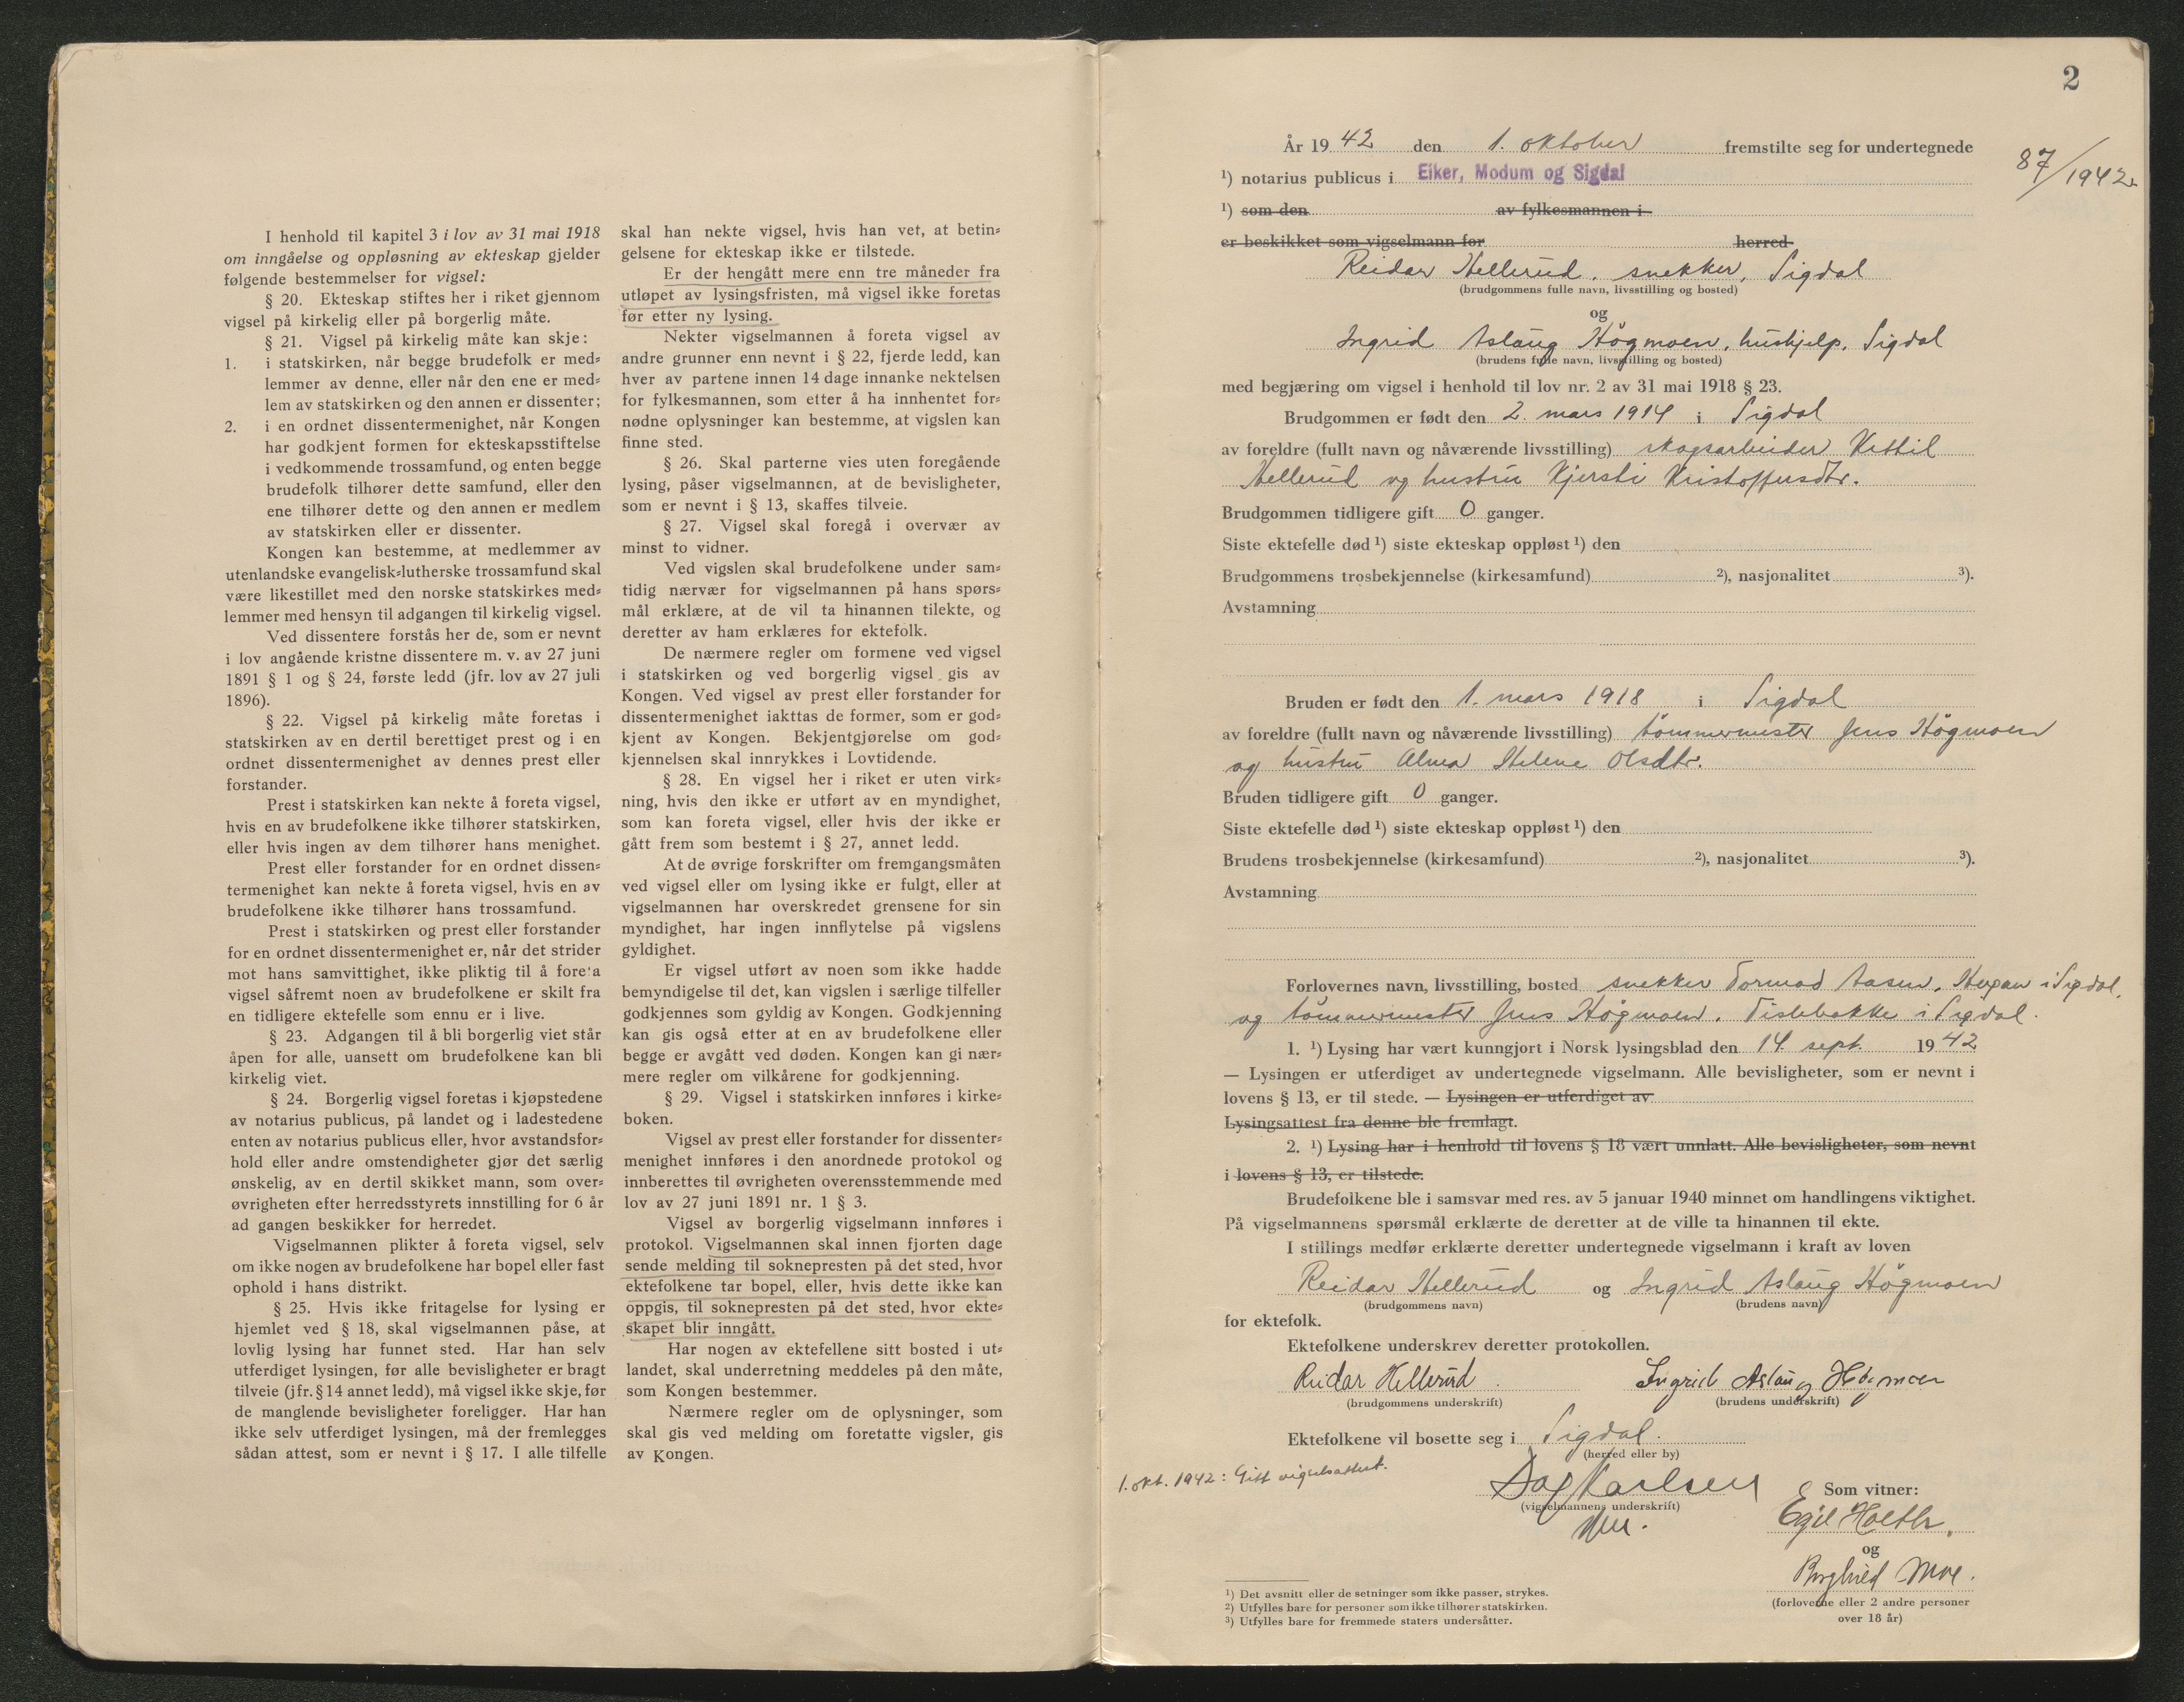 I henhold til kapitel 3 i lov av 31 mai 1918
om inngåelse og oppløsning av ekteskap gjelder
følgende bestemmelser for vigsel:
§ 20. Ekteskap stiftes her i riket gjennom
vigsel på kirkelig eller på borgerlig måte.
§ 21. Vigsel på kirkelig måte kan skje:
1. i statskirken, når begge brudefolk er med=
lemmer av denne, eller når den ene er med=
lem av statskirken og den annen er dissenter;
2. i en ordnet dissentermenighet, når Kongen
har godkjent formen for ekteskapsstiftelse
i vedkommende trossamfund, og enten begge
brudefolk tilhører dette samfund, eller den
ene tilhører dette og den annen er medlem
av statskirken eller er dissenter.
Kongen kan bestemme, at medlemmer av
utenlandske evangelisk=lutherske trossamfund skal
være likestillet med den norske statskirkes med=
lemmer med hensyn til adgangen til kirkelig vigsel.
Ved dissentere forstås her de, som er nevnt
i lov angående kristne dissentere m. v. av 27 juni
1891 § 1 og § 24, første ledd (jfr. lov av 27 juli
1896).
§ 22. Vigsel på kirkelig måte foretas i
statskirken av en dertil berettiget prest og i en
ordnet dissentermenighet av dennes prest eller
forstander.
Prest i statskirken kan nekte å foreta vigsel,
hvis en av brudefolkene ikke tilhører statskirken,
eller hvis ingen av dem tilhører hans menighet.
Prest eller forstander for en ordnet dissen=
termenighet kan nekte å foreta vigsel, hvis en av
brudefolkene ikke tilhører hans trossamfund.
Prest i statskirken og prest eller forstander
for en ordnet dissentermenighet er, når det strider
mot hans samvittighet, ikke pliktig til å foreta
vigsel såfremt noen av brudefolkene er skilt fra
en tidligere ektefelle som ennu er i live.
§ 23. Adgangen til å bli borgerlig viet står
åpen for alle, uansett om brudefolkene kan bli
kirkelig viet.
§ 24. Borgerlig vigsel foretas i kjøpstedene
av notarius publicus, på landet og i ladestedene
enten av notarius publicus eller, hvor avstandsfor=
hold eller andre omstendigheter gjør det særlig
ønskelig, av en dertil skikket mann, som over=
øvrigheten efter herredsstyrets innstilling for 6 år
ad gangen beskikker for herredet.
Vigselmannen plikter å foreta vigsel, selv
om ikke nogen av brudefolkene har bopel eller fast
ophold i hans distrikt.
§ 25. Hvis ikke fritagelse for lysing er
hjemlet ved § 18, skal vigselmannen påse, at
lovlig lysing har funnet sted. Har han selv
utferdiget lysingen, før alle bevisligheter er bragt
tilveie (jfr. § 14 annet ledd), må vigsel ikke skje, før
de manglende bevisligheter foreligger. Har han
ikke selv utferdiget lysingen, må der fremlegges
sådan attest, som er nevnt i § 17. I alle tilfelle
skal han nekte vigsel, hvis han vet, at betin=
gelsene for ekteskap ikke er tilstede.
Er der hengått mere enn tre måneder fra
utløpet av lysingsfristen, må vigsel ikke foretas
før etter ny lysing.
Nekter vigselmannen å foreta vigsel av
andre grunner enn nevnt i § 22, fjerde ledd, kan
hver av partene innen 14 dage innanke nektelsen
for fylkesmannen, som etter å ha innhentet for=
nødne oplysninger kan bestemme, at vigslen kan
finne sted.
§ 26. Skal parterne vies uten foregående
lysing, påser vigselmannen, at de bevisligheter,
som er nevnt i § 13, skaffes tilveie.
§ 27. Vigsel skal foregå i overvær av
minst to vidner.
Ved vigslen skal brudefolkene under sam=
tidig nærvær for vigselmannen på hans spørs=
mål erklære, at de vil ta hinannen tilekte, og
deretter av ham erklæres for ektefolk.
De nærmere regler om formene ved vigsel
i statskirken og ved borgerlig vigsel gis av
Kongen. Ved vigsel av prest eller forstander for
dissentermenighet iakttas de former, som er god=
kjent av Kongen. Bekjentgjørelse om god=
kjennelsen skal innrykkes i Lovtidende.
§ 28. En vigsel her i riket er uten virk=
ning, hvis den ikke er utført av en myndighet,
som kan foreta vigsel, eller hvis der ikke er
gått frem som bestemt i § 27, annet ledd.
At de øvrige forskrifter om fremgangsmåten
ved vigsel eller om lysing ikke er fulgt, eller at
vigselmannen har overskredet grensene for sin
myndighet, har ingen innflytelse på vigslens
gyldighet.
Er vigsel utført av noen som ikke hadde
bemyndigelse til det, kan vigslen i særlige tilfeller
godkjennes som gyldig av Kongen. Godkjenning
kan gis også etter at en av brudefolkene eller
begge er avgått ved døden. Kongen kan gi nær=
mere regler om vilkårene for godkjenning.
§ 29. Vigsel i statskirken innføres i kirke=
boken.
Vigsel av prest eller forstander for dissenter=
menighet innføres i den anordnede protokol og
innberettes til øvrigheten overensstemmende med
lov av 27 juni 1891 nr. 1 § 3.
Vigsel av borgerlig vigselmann innføres i
protokol. Vigselmannen skal innen fjorten dage
sende melding til soknepresten på det sted, hvor
ektefolkene tar bopel, eller, hvis dette ikke kan
oppgis, til soknepresten på det sted, hvor ekte=
skapet blir inngått.
Har nogen av ektefellene sitt bosted i ut=
landet, skal underretning meddeles på den måte,
som Kongen bestemmer.
Nærmere regler om de oplysninger, som
skal gis ved melding om foretatte vigsler, gis
av Kongen.
2
År 1942 den 1. oktober fremstilte seg for undertegnede
87/1942.
¹) notarius publicus i Eiker, Modum og Sigdal
¹) som den av fylkesmannen i
er beskikket som vigselmann for herred
Reidar Hellerud, snekker, Sigdal
(brudgommens fulle navn, livsstilling og bosted)
og
Ingrid Aslaug Högmoen, hushjelp, Sigdal
(brudens fulle navn, livsstilling og bosted)
med begjæring om vigsel i henhold til lov nr. 2 av 31 mai 1918 § 23.
Brudgommen er født den 2. mars 1914 i Sigdal
av foreldre (fullt navn og nåværende livsstilling) skogsarbeider Kittil
Hellerud og hustru Kjersti Kristoffersdtr.
Brudgommen tidligere gift 0 ganger.
Siste ektefelle død ¹) siste ekteskap oppløst ¹) den
Brudgommens trosbekjennelse (kirkesamfund) ²), nasjonalitet ³).
Avstamning
Bruden er født den 1. mars 1918 i Sigdal
av foreldre (fullt navn og nåværende livsstilling) tömmermester Jens Högmoen
og hustru Alma Helene Olsdtr.
Bruden tidligere gift 0 ganger.
Siste ektefelle død ¹) siste ekteskap oppløst ¹) den
Brudens trosbekjennelse (kirkesamfund) ²), nasjonalitet ³).
Avstamning
Forlovernes navn, livsstilling, bosted snekker Tormod Aasen, i Sigdal,
og tömmermester Jens Högmoen, Tislebakke i Sigdal.
1. ¹) Lysing har vært kunngjort i Norsk lysingsblad den 14. sept. 1942
— Lysingen er utferdiget av undertegnede vigselmann. Alle bevisligheter, som er nevnt i
lovens § 13, er til stede. — Lysingen er utferdiget av
Lysingsattest fra denne ble fremlagt.
2. ¹) Lysing har i henhold til lovens § 18 vært unnlatt. Alle bevisligheter, som nevnt
i lovens § 13, er tilstede.
Brudefolkene ble i samsvar med res. av 5 januar 1940 minnet om handlingens viktighet.
På vigselmannens spørsmål erklærte de deretter at de ville ta hinannen til ekte.
I stillings medfør erklærte deretter undertegnede vigselmann i kraft av loven
Reidar Hellerud og Ingrid Aslaug Högmoen
(brudgommens navn) (brudens navn)
for ektefolk.
Ektefolkene underskrev deretter protokollen.
Reidar Hellerud Ingrid Aslaug Högmoen
(brudgommens underskrift) (brudens underskrift)
Ektefolkene vil bosette seg i Sigdal.
(herred eller by)
1. okt. 1942: Gitt vigselsattest.
Dag Karlsen
(vigselmannens underskrift)
Som vitner:
Egil Holth.
og
Borghild Moe.
(forloverne eller 2 andre personer
over 18 år)
¹) Det avsnitt eller de setninger som ikke passer, strykes.
²) Utfylles bare for personer som ikke tilhører statskirken.
³) Utfylles bare for fremmede staters undersåtter.